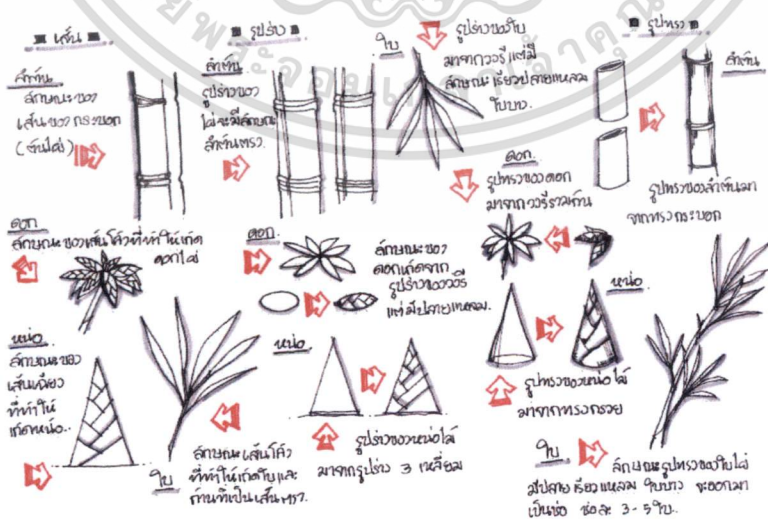 เส้น
ลำต้น
ลักษณะของ
เส้นของกระบอก
(ต้นไผ่)
ดอก
ลักษณะของเส้นโค้งที่ทำให้เกิด
ดอกไผ่
หน่อ
ลักษณะของ
เส้นเฉียง
ที่ทำให้
เกิดหน่อ..
ใบ
ลักษณะเส้นโค้ง
ที่ทำให้เกิดใบและ
ก้านที่เป็นเส้นตรง.
รูปร่าง
ลำต้น
รูปร่างของ
ไผ่จะมีลักษณะ
ลำต้นตรง.
ใบ
รูปร่างของใบ
มาจากวงรีแต่มี
ลักษณะเรียวปลายแหลม
ใบบาง.
ดอก.
ลักษณะของ
ดอกเกิดจาก
รูปร่างของวงรี
แต่มีปลายแหลม.
หน่อ.
รูปร่างของหน่อไม้
มาจากรูปร่าง 3 เหลี่ยม
รูปทรง
ลำต้น
รูปทรงของลำต้นมา
จากทรงกระบอก
ดอก.
รูปทรงของดอก
มาจากวงรีรวมกัน
หน่อ.
รูปทรงของหน่อไม้
มาจากทรงกรวย
ใบ
ลักษณะรูปทรงของใบไผ่
มีปลายเรียวแหลม ใบบาง จะออกมา
เป็นช่อ ช่อละ 3-5 ใบ.